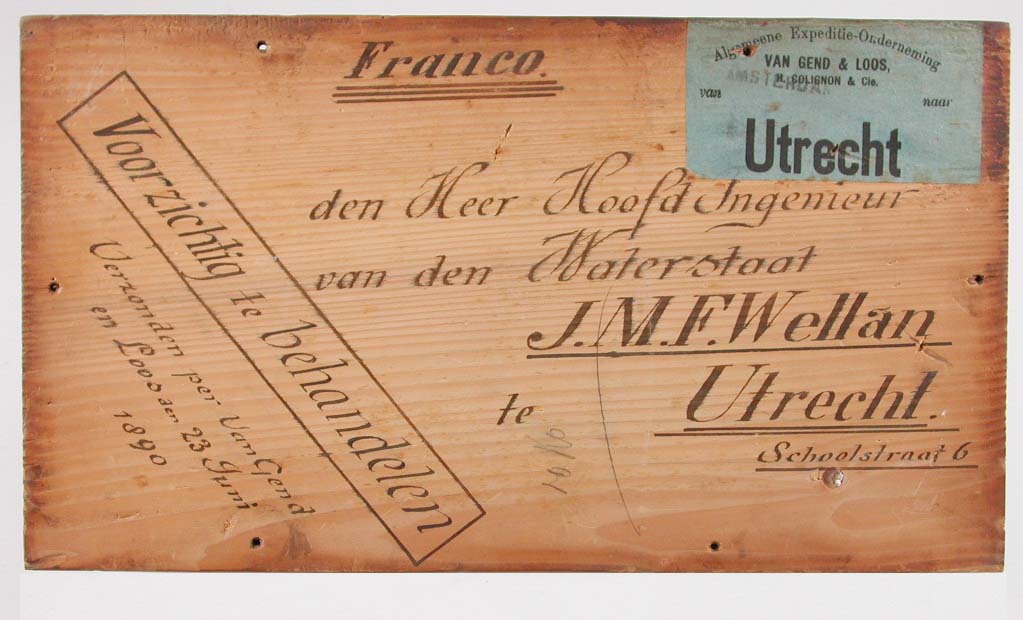 Franco.
Algemeene Expeditie-Onderneming
VAN GEND & LOOS,
H. COLIGNON & Cie.
AMSTERDAM
van naar
Utrecht
den Heer Hoofd Ingenieur
van den Waterstaat
J.M.F. Wellan
te Utrecht.
Schoolstraat 6
Voorzichtig te behandelen
Verzonden per Van Gend
en Loos den 23 Juni
1890